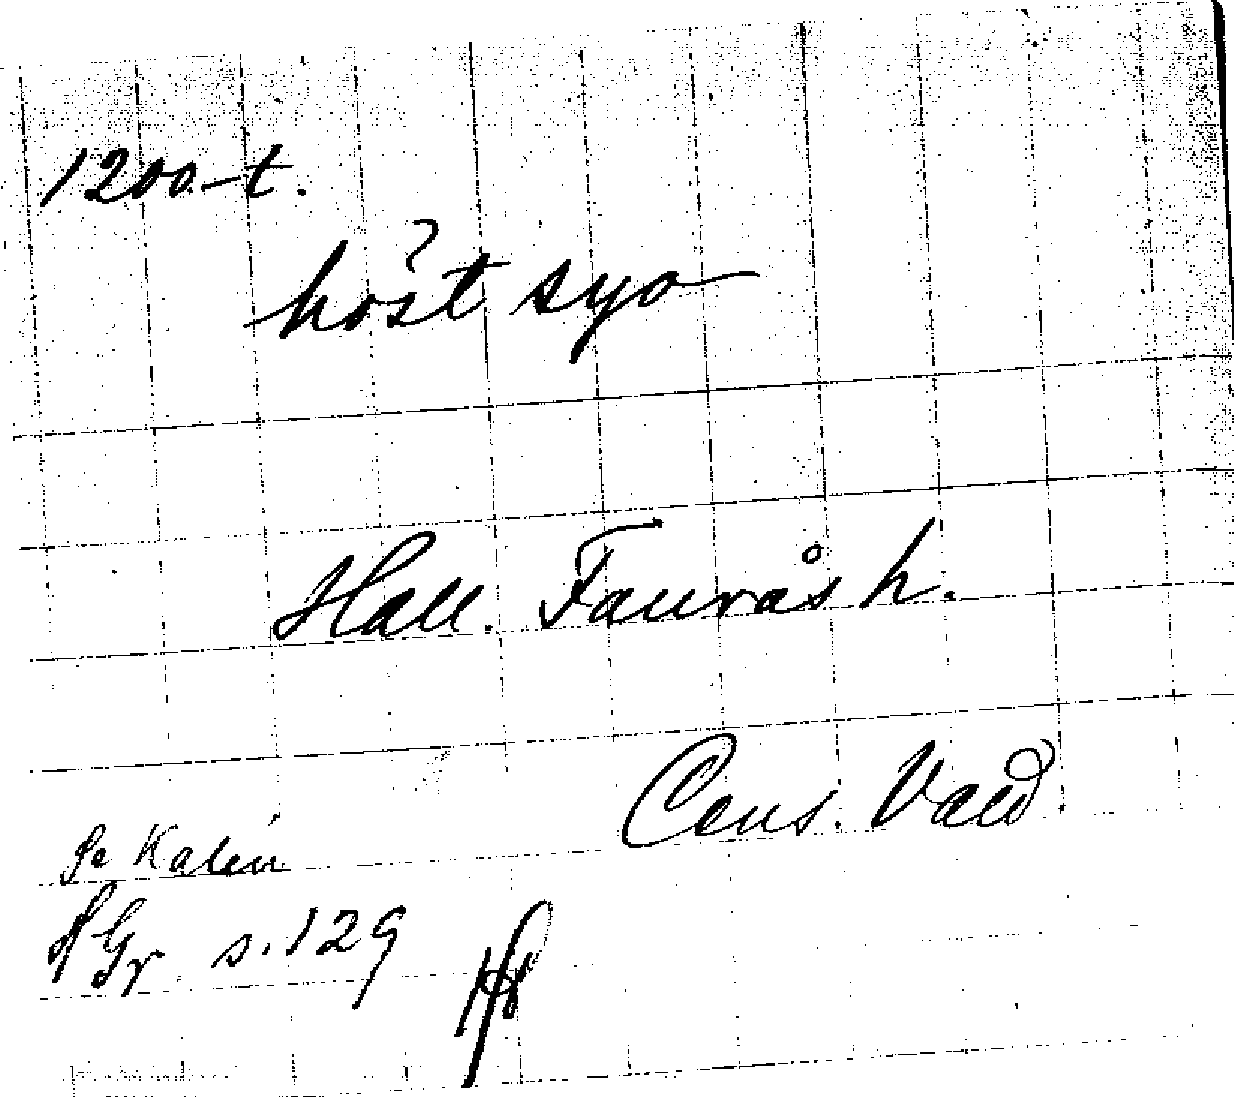 1200-t.
höst syo
Hall. Faurås h.
Cens. Vald
Se Kalén
HGr s. 129